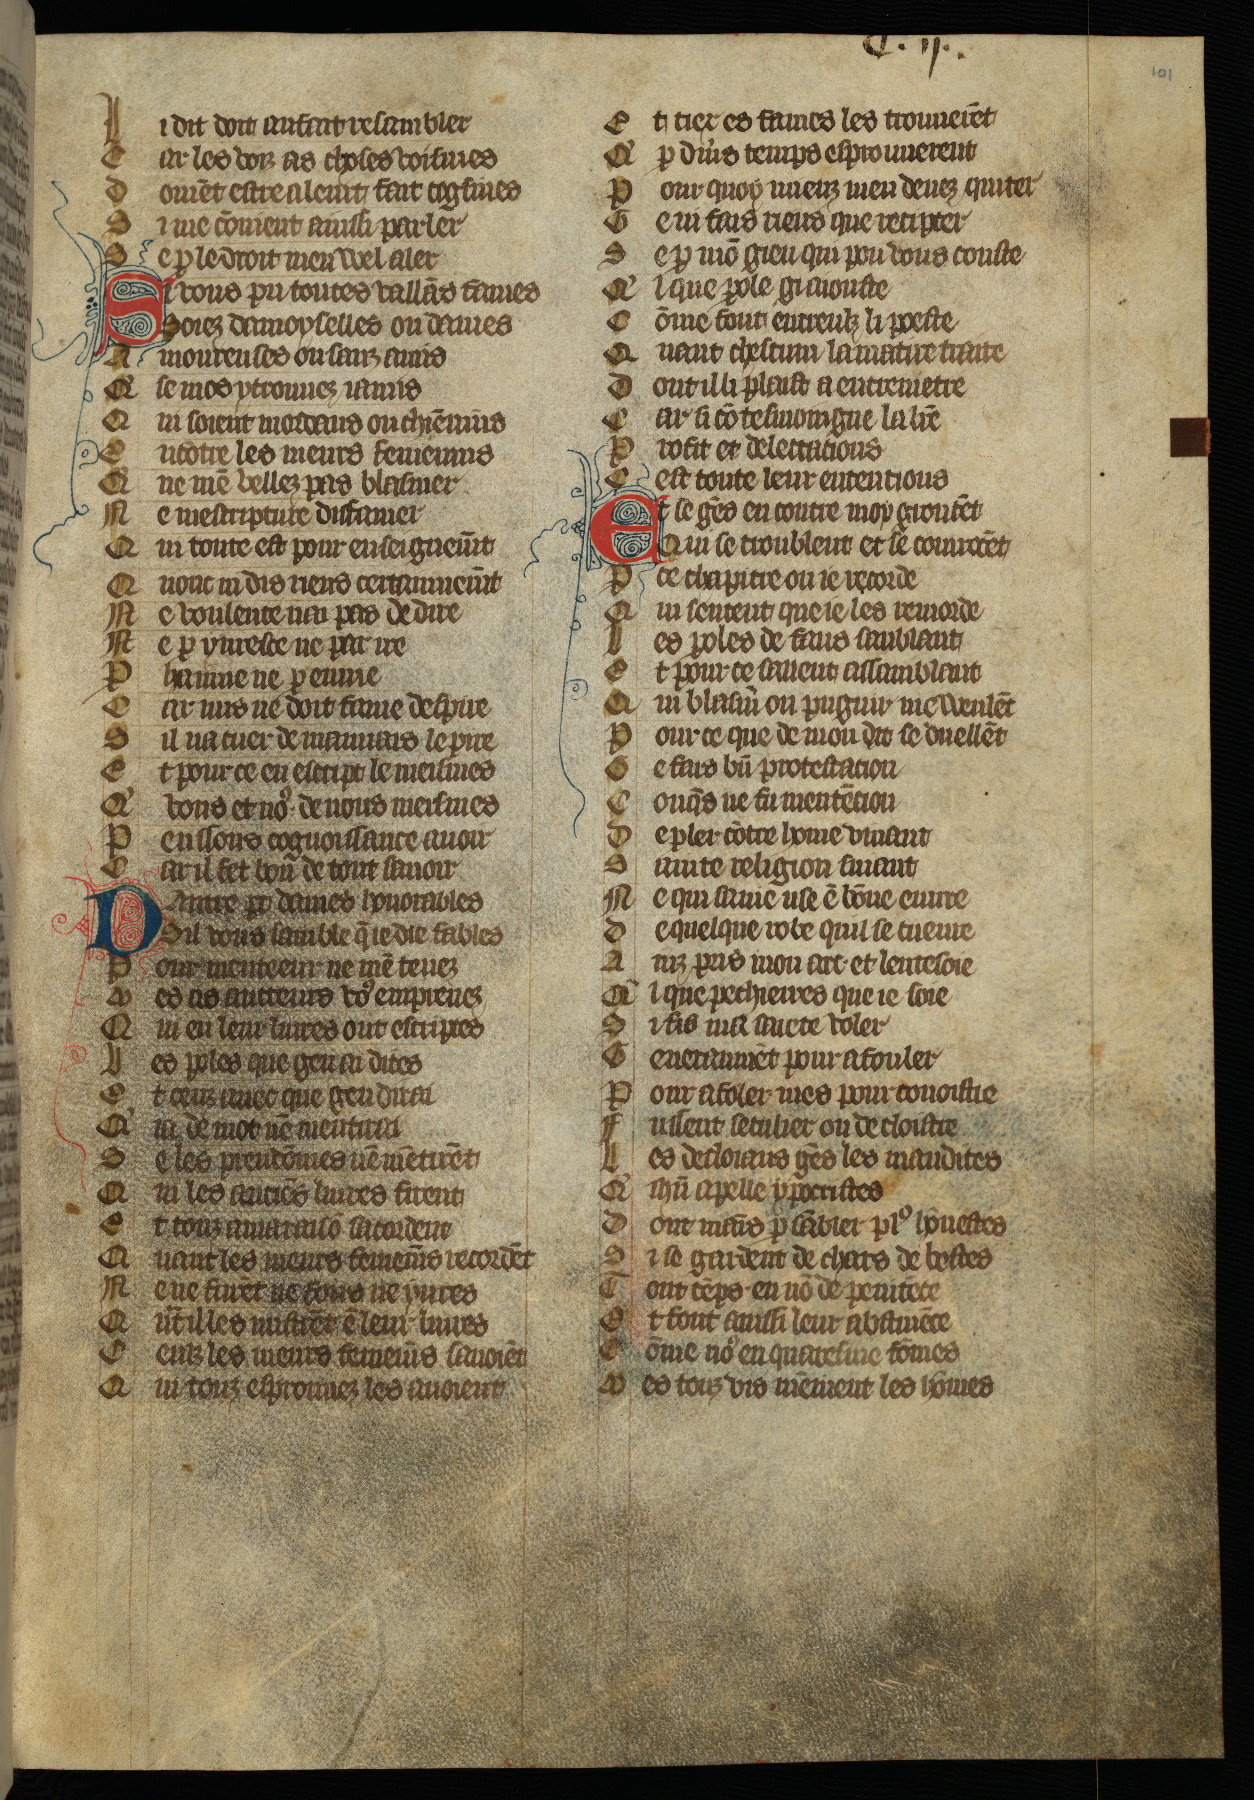 C. ij.
101
L i dit doit au fait resambler
C ar les voiz as choses voisines
D oivēt estre a leur fait cousines
S i me cōvient ainssi parler
S e p le droit men vuel aler
Si vous pri toutes vaillās fames
Soiez damoyselles ou dames
A moureuses ou sanz amis
Q se mos y trouvez ia mis
Q ui soient mordans ou chiēnins
E ncōtre les meurs femenins
Q ne mē vellez pas blasmer
N e mescripture diffamer
Q ui toute est pour enseignemt
Q nonc ni dis riens certainnemt
N e voulente nai pas de dire
N e p yvresce ne par ire
P haine ne p envie
C ar nus ne doit fame despire
S il na cuer de mauvais le pire
E t pour ce en escript le meismes
Q vous et no9 de nous meismes
P enissons cognoissance avoir
C ar il fet bon de tout savoir
Dautre pt dames honorables
Sil vous samble q̄ ie die fables
P our menteeur ne mē tenez
M es as autteurs vo9 emprenez
Q ui en leur livres ont escriptes
L es poles que gen ai dites
E t ceuz avec que gen dirai
Q ia de mot ne mentirai
S e les preudōmes nē mētirēt
Q ui les anciēs livres firent
E t touz a ma raisō sacordent
Q uant les meurs femenīs recordēt
N e ne furēt ne fous ne yvres
Q nt il les mistrēt ē leur livres
C euz les meurs femenīs savoiēt
Q ui touz esprouvez les avoient
E t tiex es fames les trouverēt
Q p divs temps esprouverent
P our quoy mieuz men devez quiter
G e ni fais riens que reciter
S e p mō gieu qui pou vous couste
Q lque pole gi aiouste
C ōme font entreulz li poete
Q uant chescun la matire traite
D ont il li plaist a entremetre
C ar si cō tesmoingne la lre
P rofit et delectations
C est toute leur ententions
Et se gēs en contre moy groucēt
Qui se troublent et se courrocēt
P ce chapitre ou ie recorde
Q ui sentent que ie les remorde
L es poles de faus samblant
E t pour ce saillent assamblant
Q ui blasm ou pugnir me veulēt
P our ce que de mon dit se duellēt
G e fais bn̄ protestacion
C onqs ne fu mentēcion
D e pler cōtre home vivant
S ainte religion suiant
N e qui sa vie use ē bōne euvre
D e quelque robe quil se cuevre
A inz pris mon arc et lentesoie
Q lque pechierres que ie soie
S i fis ma saiete voler
G eneraumēt pour afouler
P our afoler mes pour connoistre
F ussent seculier ou de cloistre
L es desloiaus gēs les maudites
Q ihū apelle ypocrites
D ont maīs p sābler pl9 honestes
S i se gardent de chars de bestes
T out tēps en nō de penitēce
E t font ainssi leur abstinēce
C ōme no9 en quaresme fōmes
M es touz vis mēivent les hōmes